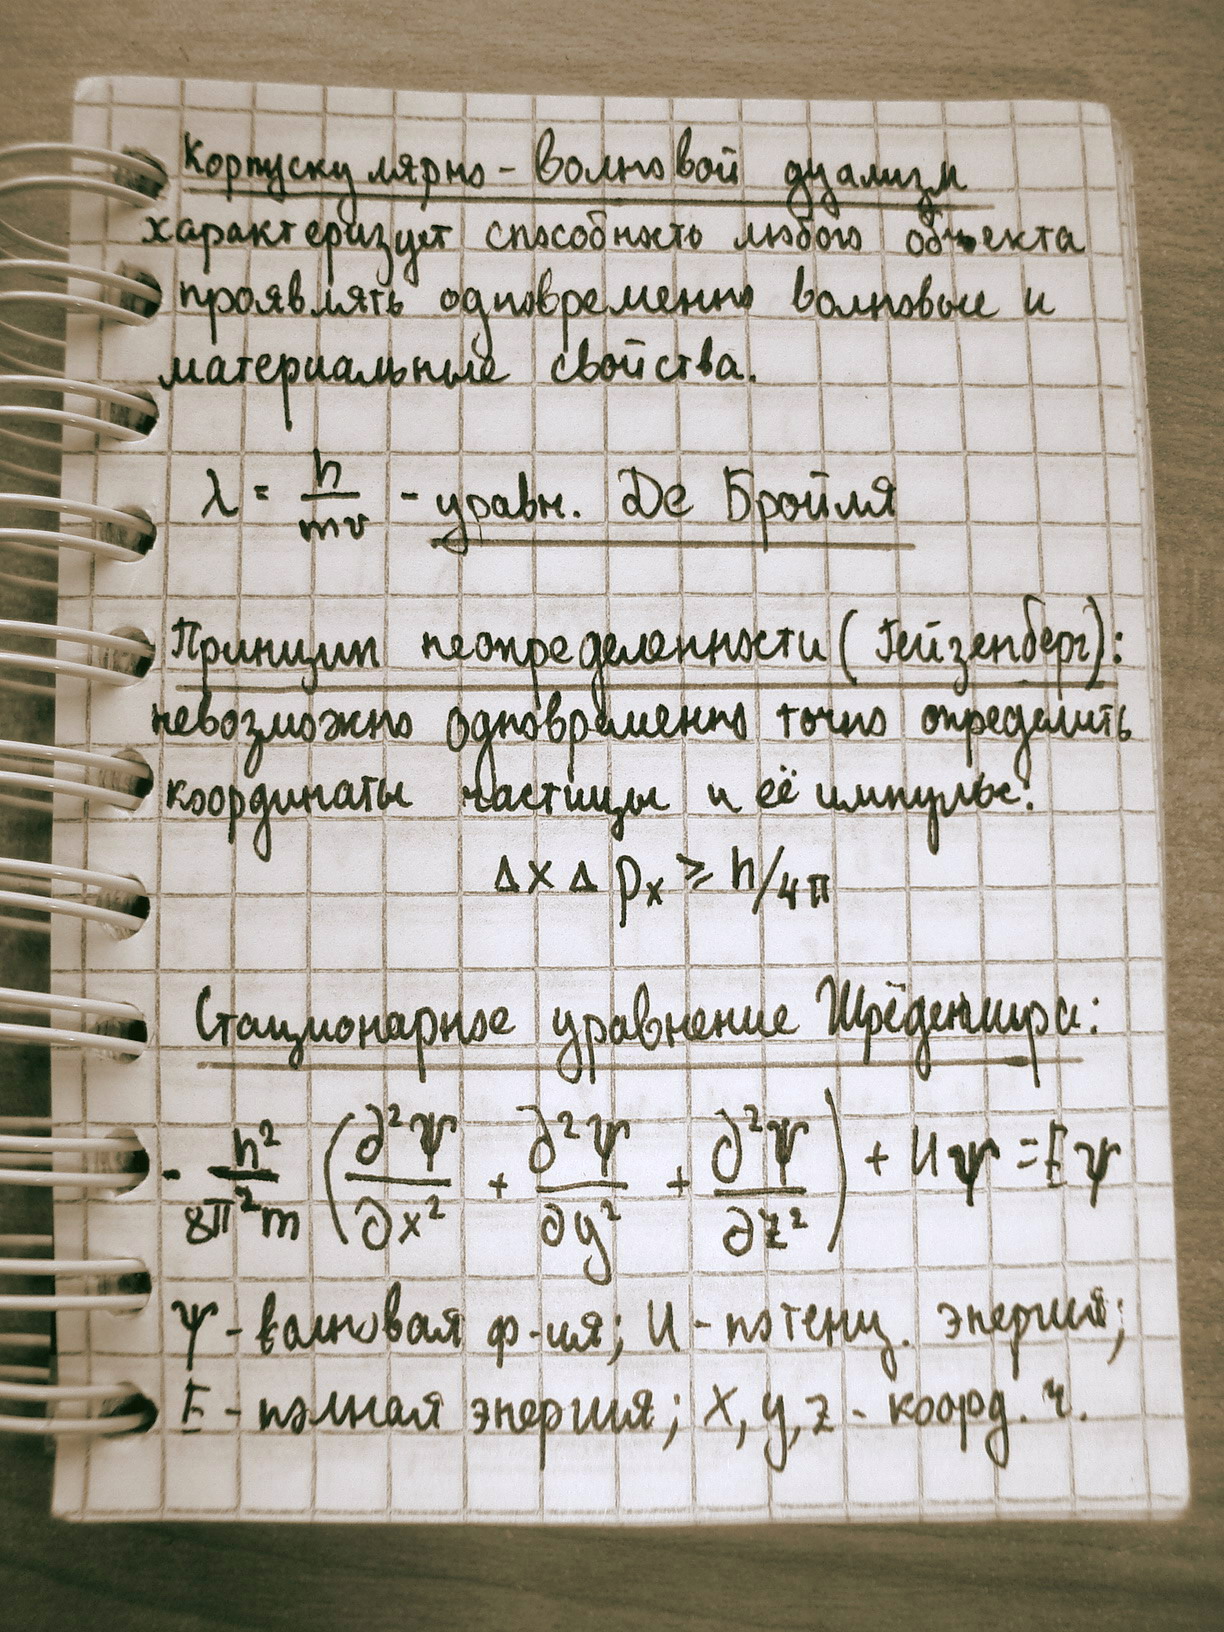 Корпускулярно-волновой дуализм
характеризует способность любого объекта
проявлять одновременно волновые и
материальные свойства.
λ = h/mv - уравн. Де Бройля
Принцип неопределенности (Гейзенберг):
невозможно одновременно точно определить
координаты частицы и её импульс:
Δx Δ pₓ ⩾ h/4π
Стационарное уравнение Шрёденгира:
- h²/8π²m (∂²ψ/∂x² + ∂²ψ/∂y² + ∂²ψ/∂z²) + Uψ = Eψ
ψ - волновая ф-ия; U - потенц. энергия;
E - полная энергия; x, y, z - коорд. ч.